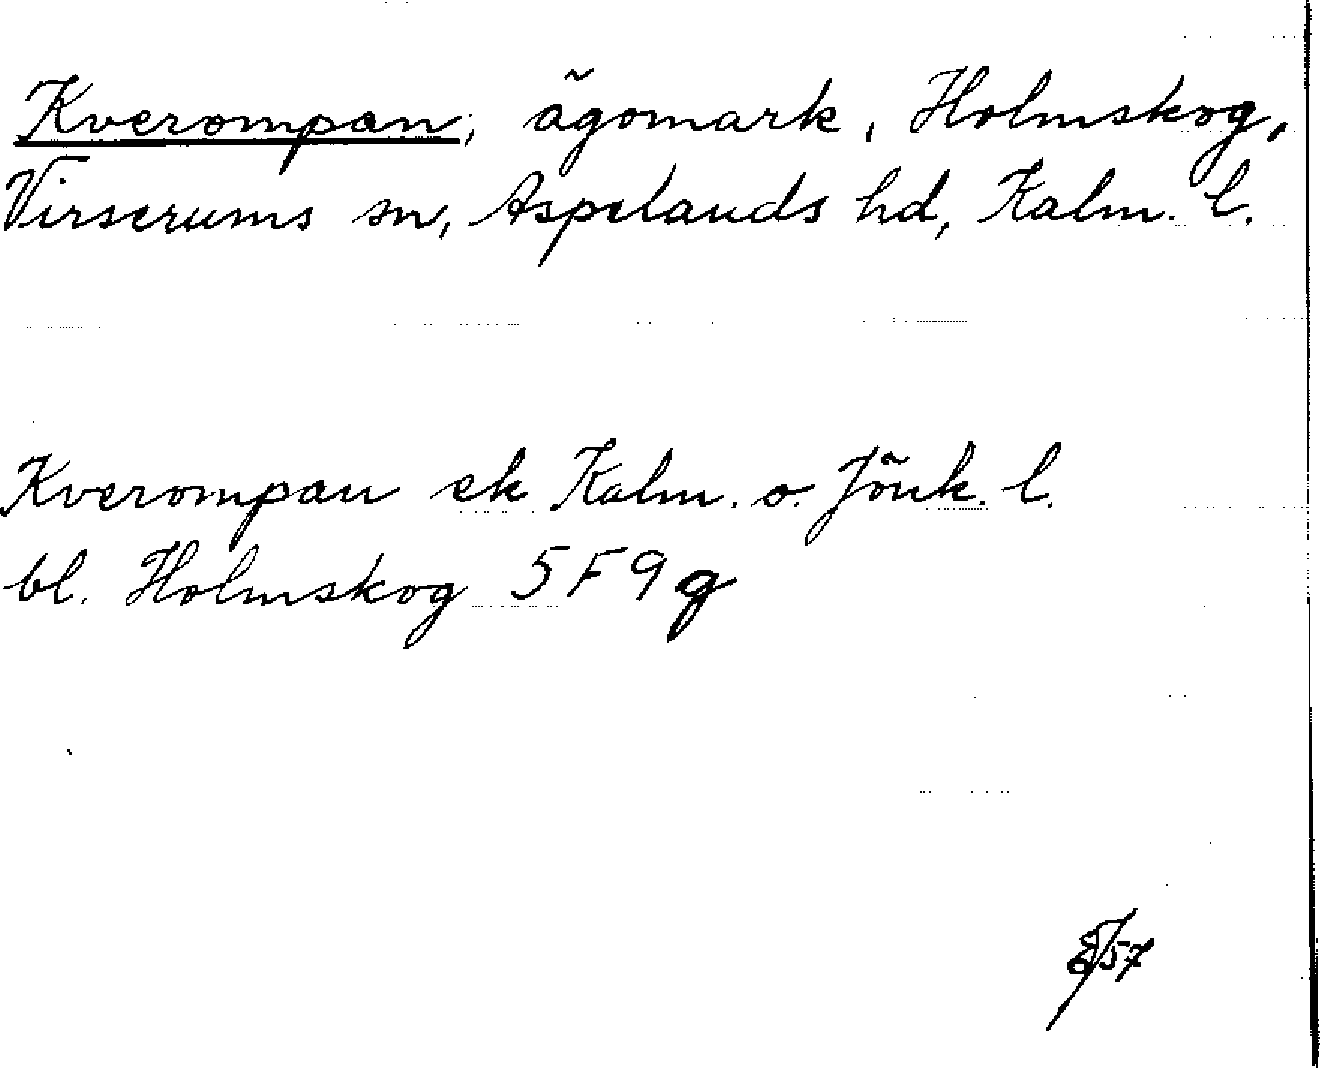 Kverompan, ägomark, Holmskog,
Virserums sn, Aspelands hd, Kalm. l.
Kverompan ek Kalm. o. Jönk. l.
bl. Holmskog 5F9g
57